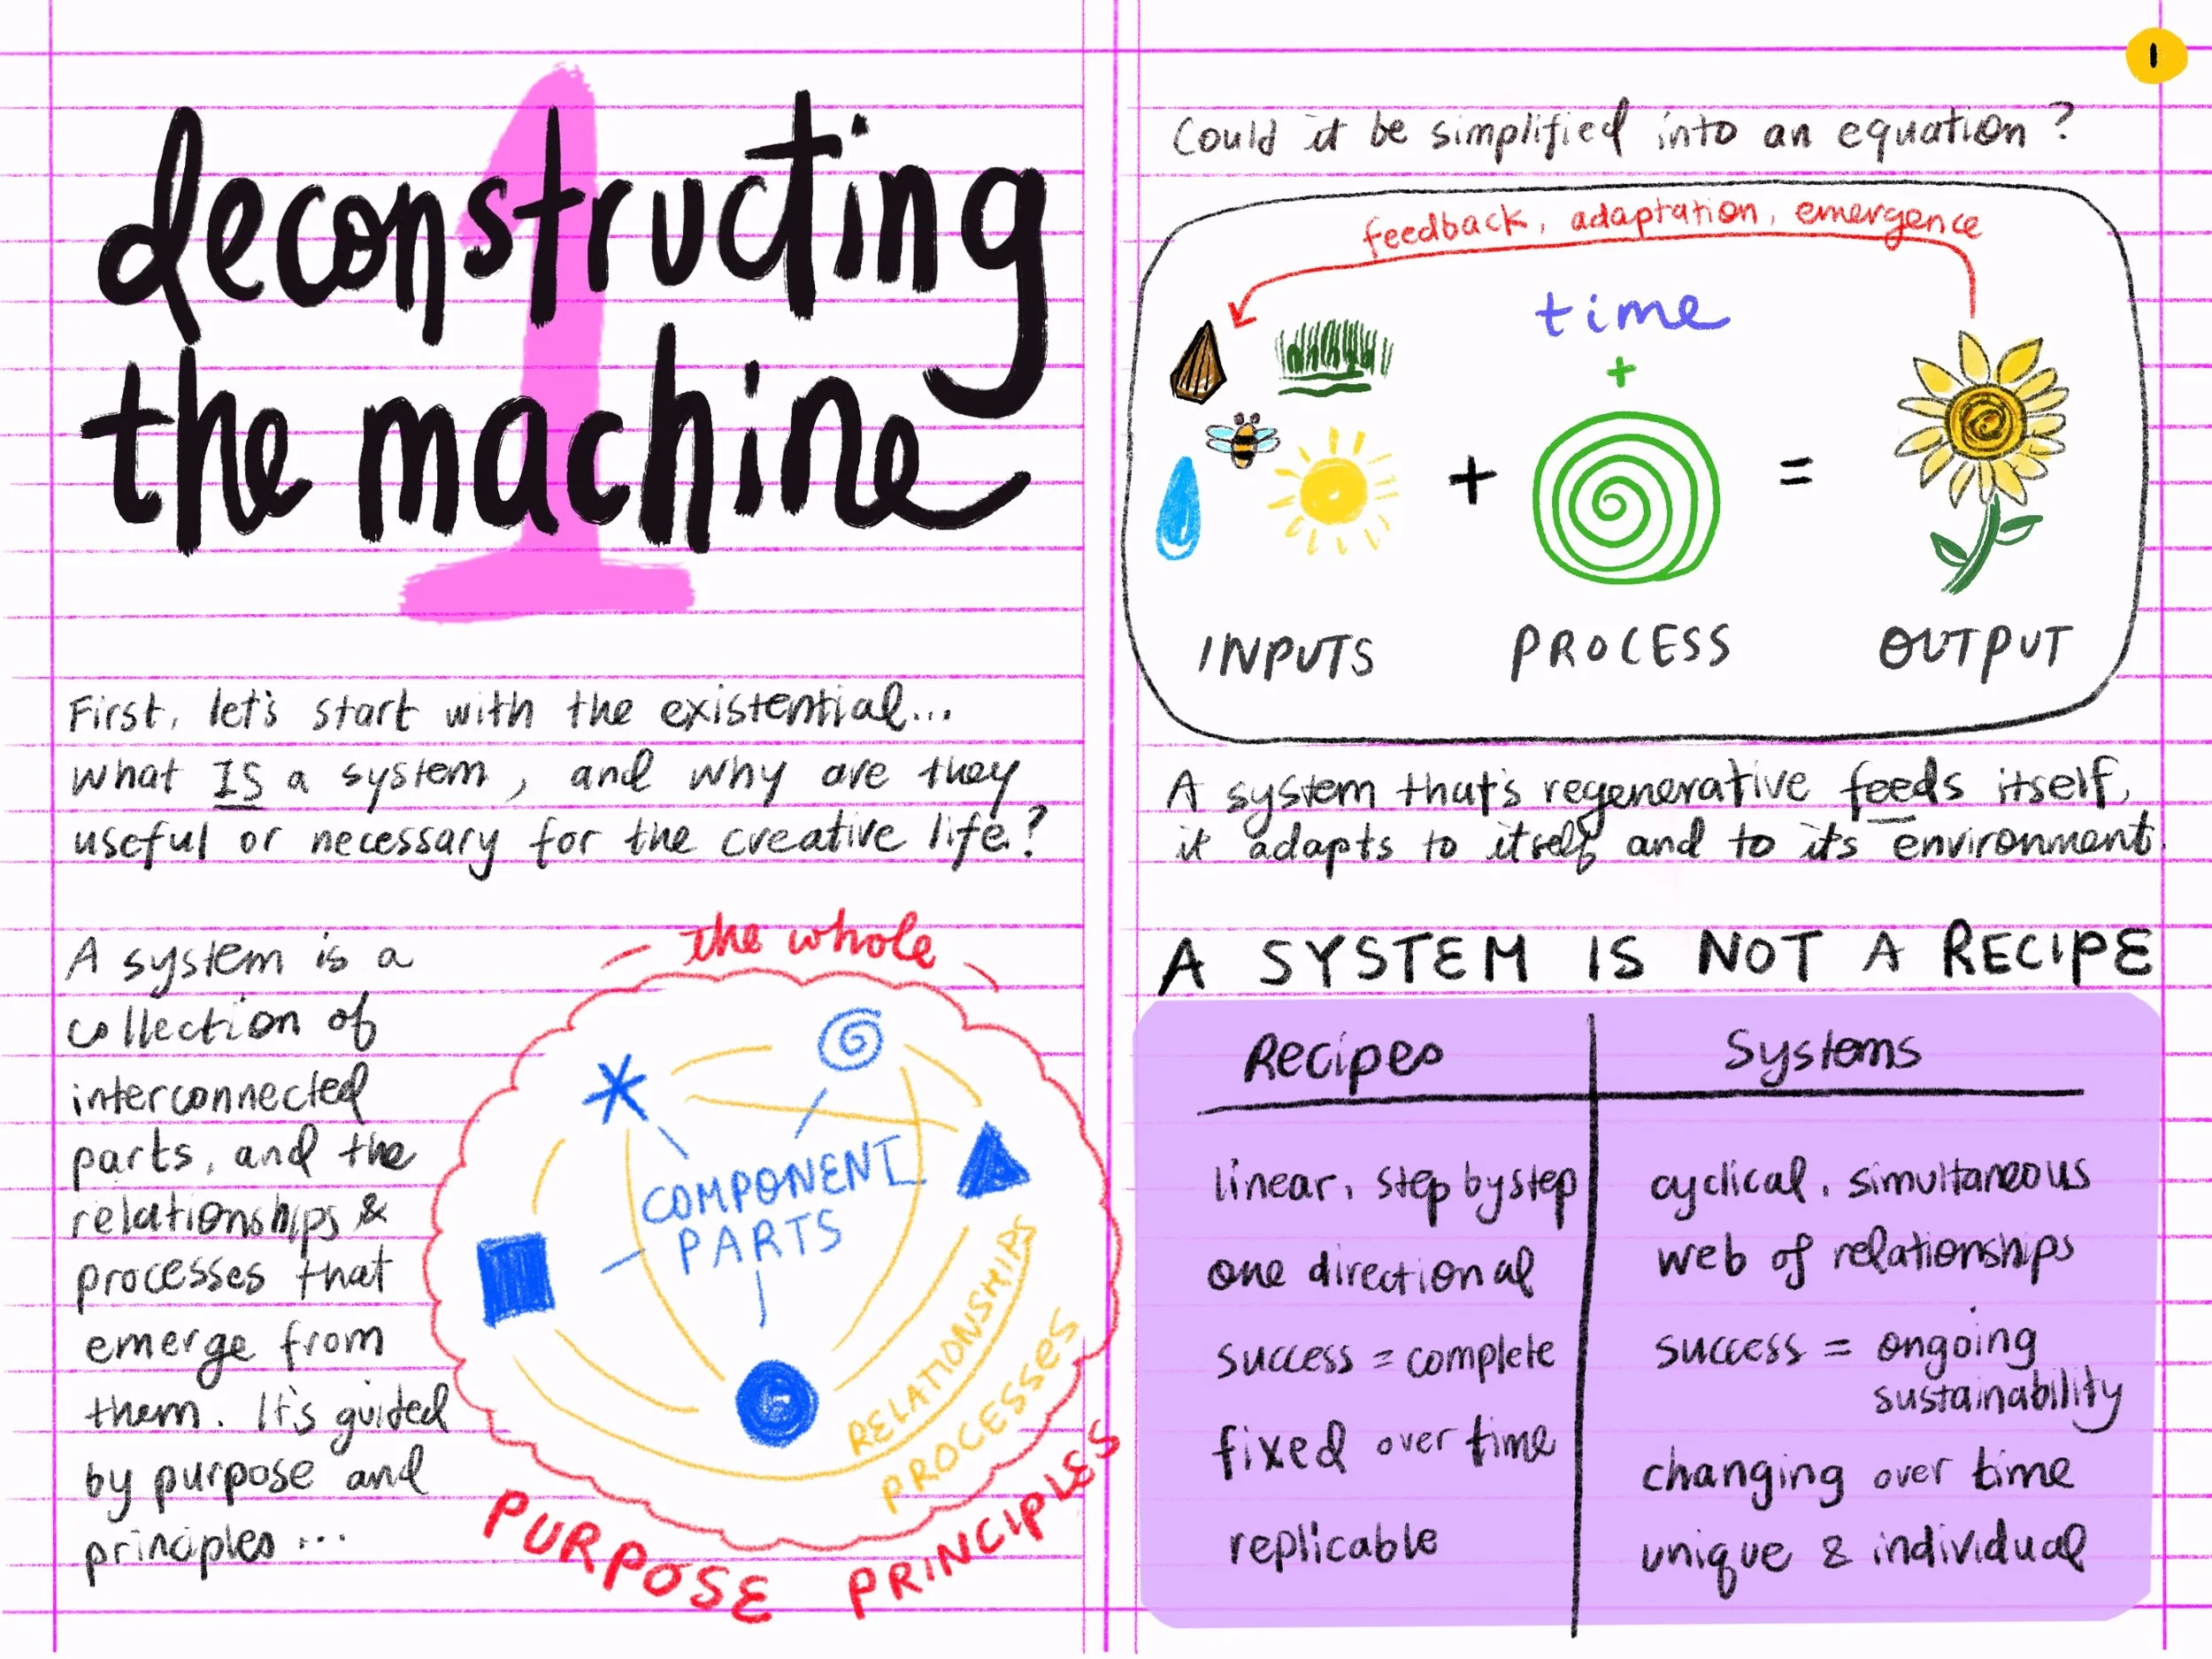 1
deconstructing
the machine
First, let's start with the existential...
what IS a system, and why are they
useful or necessary for the creative life?
A system is a
collection of
interconnected
parts, and the
relationships &
processes that
emerge from
them. It's guided
by purpose and
principles...
the whole
COMPONENT
PARTS
RELATIONSHIPS
PROCESSES
PURPOSE PRINCIPLES
1
Could it be simplified into an equation?
feedback, adaptation, emergence
time
+
+ =
INPUTS PROCESS OUTPUT
A system that's regenerative feeds itself,
it adapts to itself and to its environment.
A SYSTEM IS NOT A RECIPE
Recipes Systems
linear, step by step cyclical, simultaneous
one directional web of relationships
success = complete success = ongoing
sustainability
fixed over time changing over time
replicable unique & individual